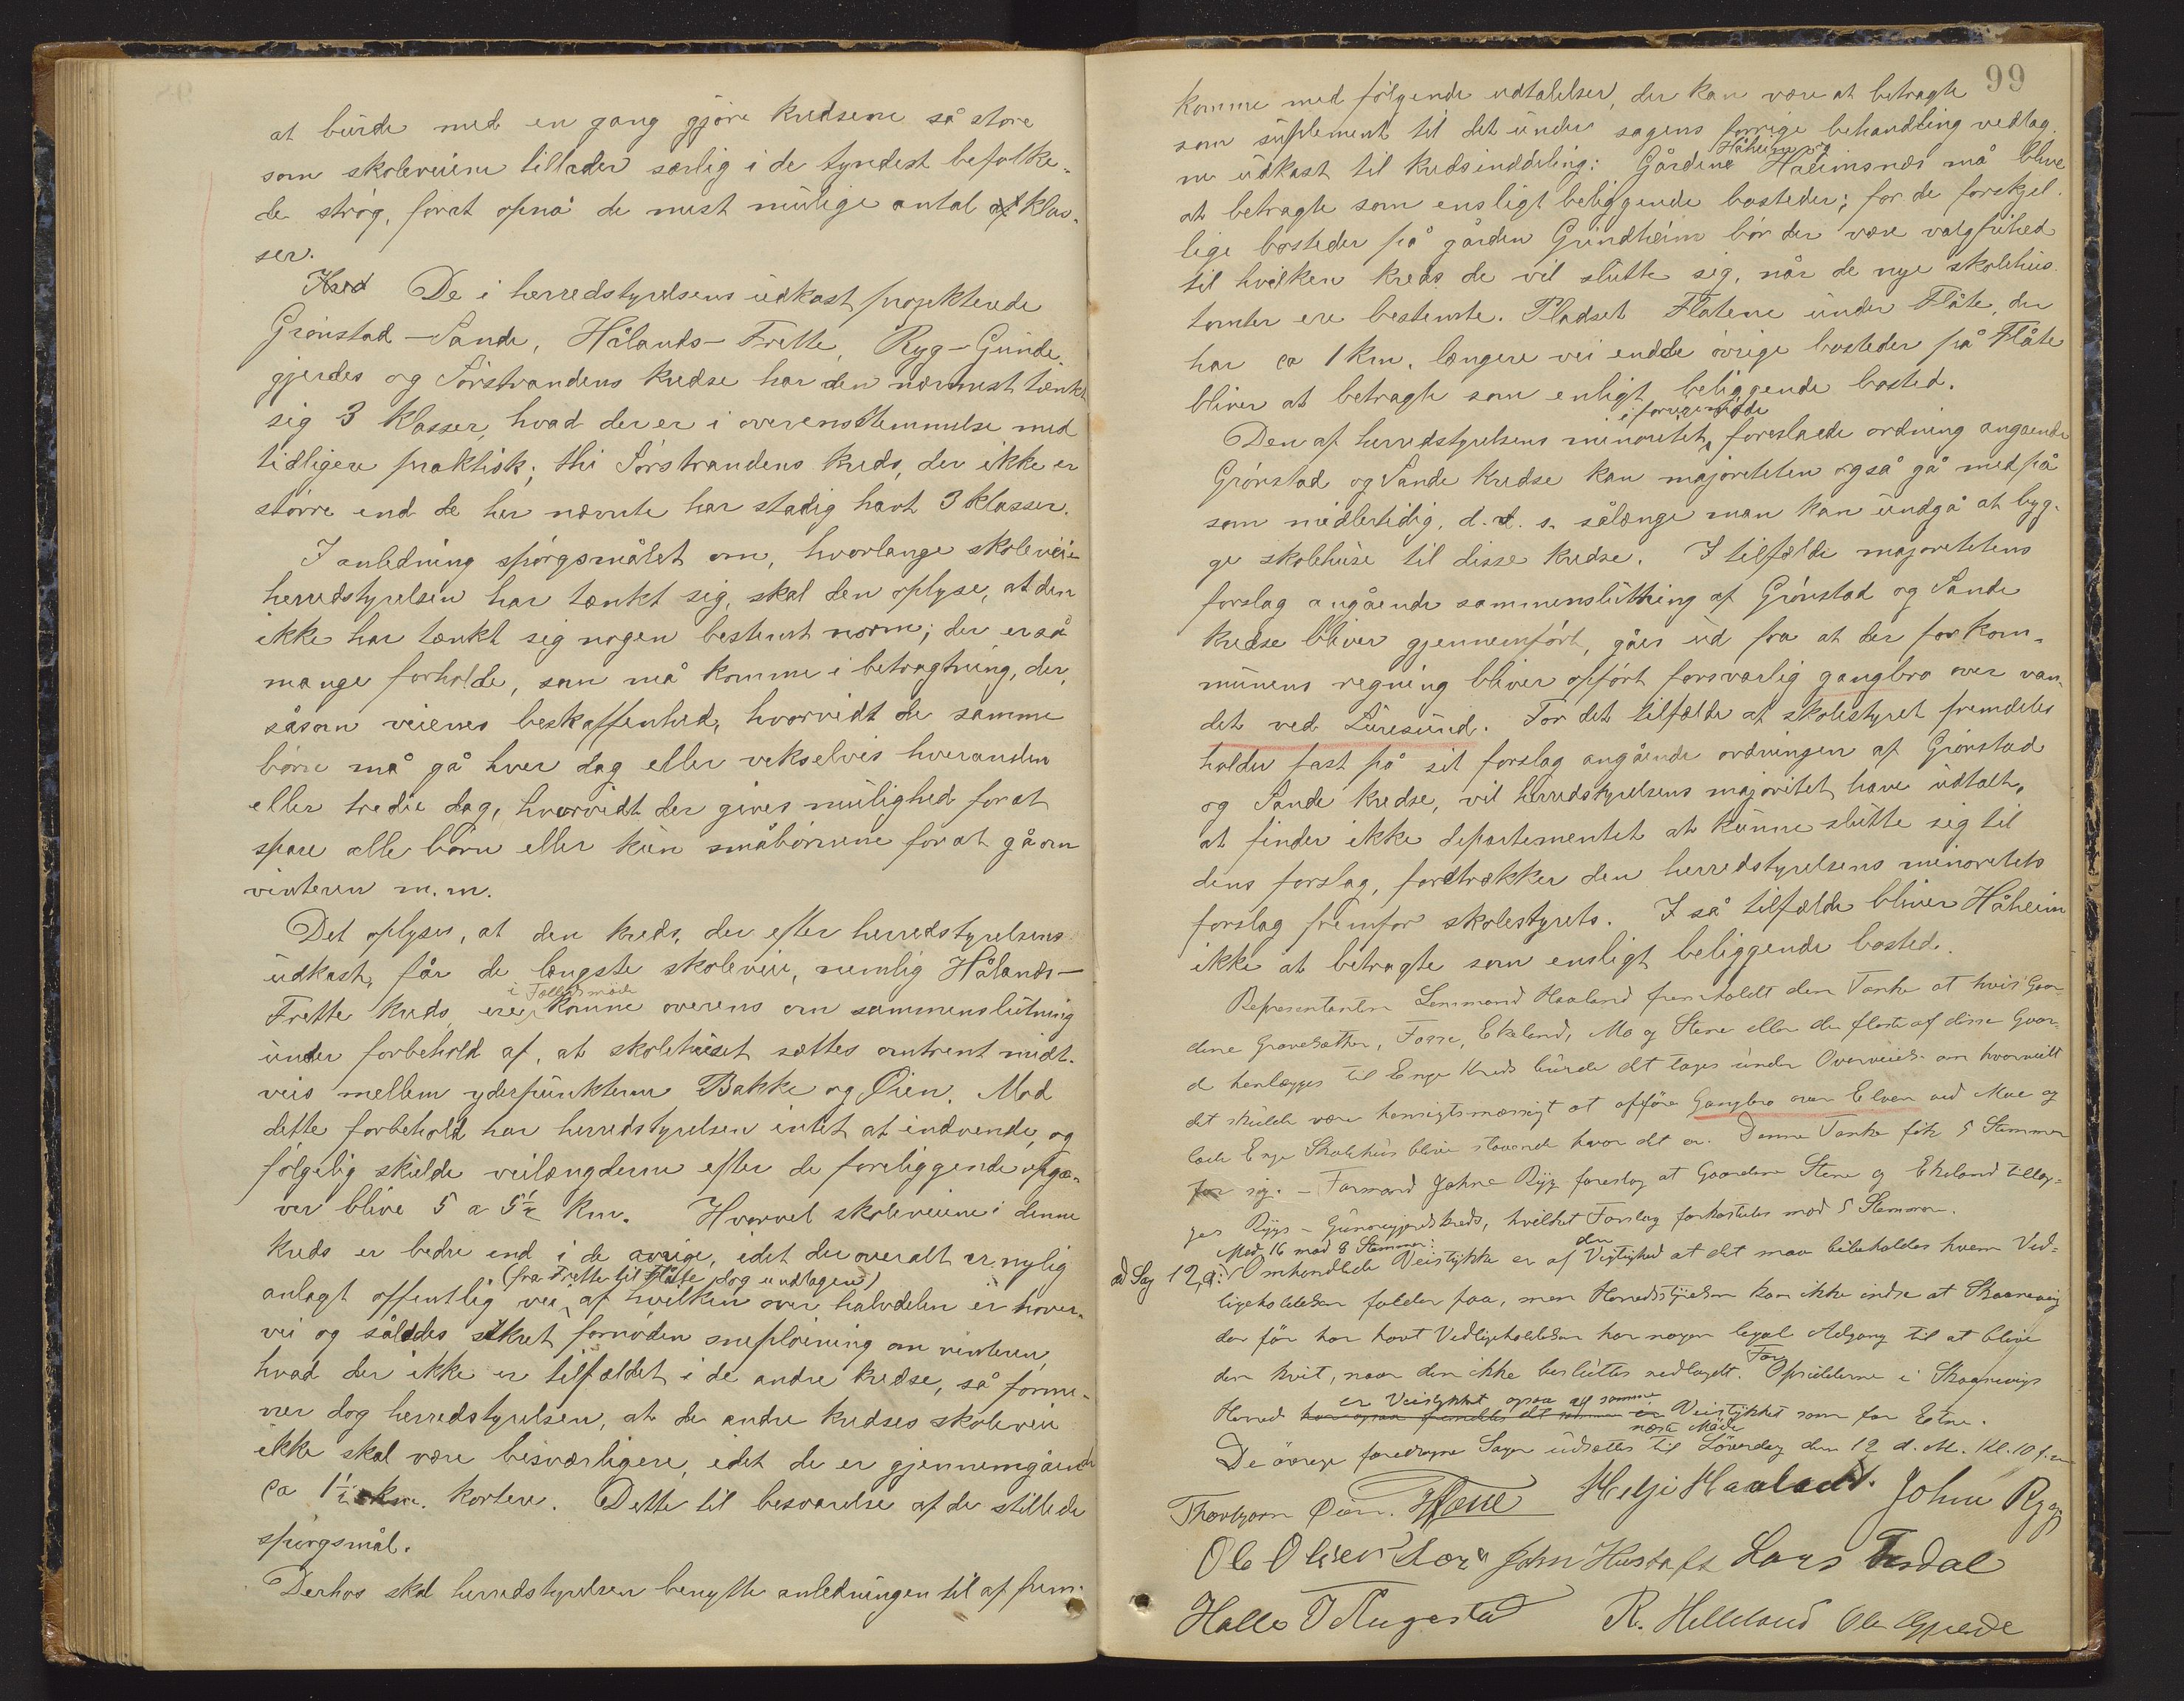 at burde med en gang gjøre kredsene så store
som skoleveiene tillader særlig i de tyndest befolke-
de strøg, forat opnå de mest mulige antal af klas-
ser.
Kred De i herredstyrelsens udkast projekterede
Grønstad-Sande, Hålands-Frette, Ryg-Gunde-
gjerdes og Sørstrandens kredse har den nærmest tænkt
sig 3 klasser, hvad der er i overensstemmelse med
tidligere praktisk; thi Sørstrandens kreds, der ikke er
større end de her nævnte har stadig havt 3 klasser.
I anledning spørgsmålet om, hvorlange skoleveie
herredstyrelsen har tænkt sig, skal den oplyse, at den
ikke har tænkt sig nogen bestemt norm; der er så
mange forholde, som må komme i betragtning, der,
såsom veienes beskaffenhed, hvorvidt de samme
børn må gå hver dag eller vekselvis hveranden
eller tredie dag, hvorvidt der gives mulighed forat
spare alle børn eller kun småbørnene for at gå om
vinteren m.m.
Det oplyses, at den kreds, der efter herredstyrelsens
udkast, får de længste skoleveie, nemlig Hålands-
i Fællesmøde
Frette kreds, ere komne overens om sammenslutning
under forbehold af, at skolehuset sættes omtrent midt-
veis mellem yderpunkterne Bakke og Øien. Mod
dette forbehold har herredstyrelsen intet at indvende, og
følgelig skulde veilængderne efter de foreliggende opga-
ver blive 5 a 5½ km. Hvorvel skoleveiene i denne
kreds er bedre end i de øvrige, idet der overalt er nylig
(fra Frette til Flåte dog undtagen)
anlagt offentlig vei, af hvilken over halvdelen er hoved-
vei og således sikret fornøden sneploining om vinteren,
hvad der ikke er tilfældet i de andre kredse, så forme-
ner dog herredstyrelsen, at de andre kredses skoleveie
ikke skal være besværligere, idet de er gjennemgående
ca 1½ km. kortere. Dette til besvarelse af de stillede
spørgsmål.
Derhos skal herredstyrelsen benytte anledningen til at frem-
99
komme med følgende udtalelser, der kan være at betragte
som suplement til det under sagens forrige behandling vedtag-
Håheim og
ne udkast til kredsinddeling: Gårdene Håeimsnæs må blive
at betragte som ensligt beliggende bosteder; for de forskjel-
lige bosteder på gården Grindheim bør der være valgfrihed
til hvilken kreds de vil slutte sig, når de nye skolehus-
tomter ere bestemte. Pladset Flatene under Flåte, der
har ca 1 km. længere vei end de øvrige bosteder på Flåte
bliver at betragte som enligt beliggende bosted.
i forrige møde
Den af herredstyrelsens minoritet foreslaede ordning angaaende
Grønstad og Sande kredse kan majoriteten også gå med på
som midlertidig, d.v.s. sålænge man kan undgå at byg-
ge skolehuse til disse kredse. I tilfælde majoritetens
forslag angående sammenslutning af Grønstad og Sande
kredse bliver gjennemført, gåes ud fra at der for kom-
munens regning bliver opført forsvarlig gangbro over van-
det ved Luresund. For det tilfælde at skolestyret fremdeles
holder fast på sit forslag angående ordningen af Grønstad
og Sande kredse, vil herredstyrelsens majoritet have udtalt,
at finder ikke departementet at kunne slutte sig til
dens forslag, foretrækker den herredstyrelsens minoritets
forslag fremfor skolestyrets. I så tilfælde bliver Håheim
ikke at betragte som ensligt beliggende bosted.
Repræsentanten Lensmand Haaland fremholdt den Tanke at hvis Gaar-
dene Gravesæther, Fosse, Ekeland, Mo og Stene eller de fleste af disse Gaar-
de henlægges til Enge Kreds burde det tages under Overveielse om hvorvidt
det skulde være hensigtsmæssigt at opføre Gangbro over Elven ved Moe og
lade Enge Skolehus blive staaende hvor det er. Denne Tanke fik 5 Stemmer
for sig. – Formand Johne Rygg foreslog at Gaardene Stene og Ekeland tillæg-
ges Ryggs-Gunnegjerdskreds, hvilket Forslag forkastedes mod 5 Stemmer.
Med 16 mod 8 Stemmer:
den
ad Sag 12,a: Omhandlede Veistykke er af Vigtighed at det maa bibeholdes hvem Ved-
ligeholdelsen falder paa, men Herredsstyrelsen kan ikke indse at Skaanevig
der før har havt Vedligeholdelsen har nogen legal Adgang til at blive
For
den kvit, naar den ikke besluttes nedlagt. Opsidderne i Skaanevigs
er Veistykket ogsaa af samme
Herred har ogsaa Veistykket som for Etne.
næste Møde
De øvrige foredragne Sager udsættes til Lørerdag den 12 d. M. Kl. 10 f.m
Thorbjørn Øien. Helje Haaland. Johne Rygg
Ole Olsen John Hustoft Lars Tesdal
Halle T Augestad R. Helleland Ole Gjerde